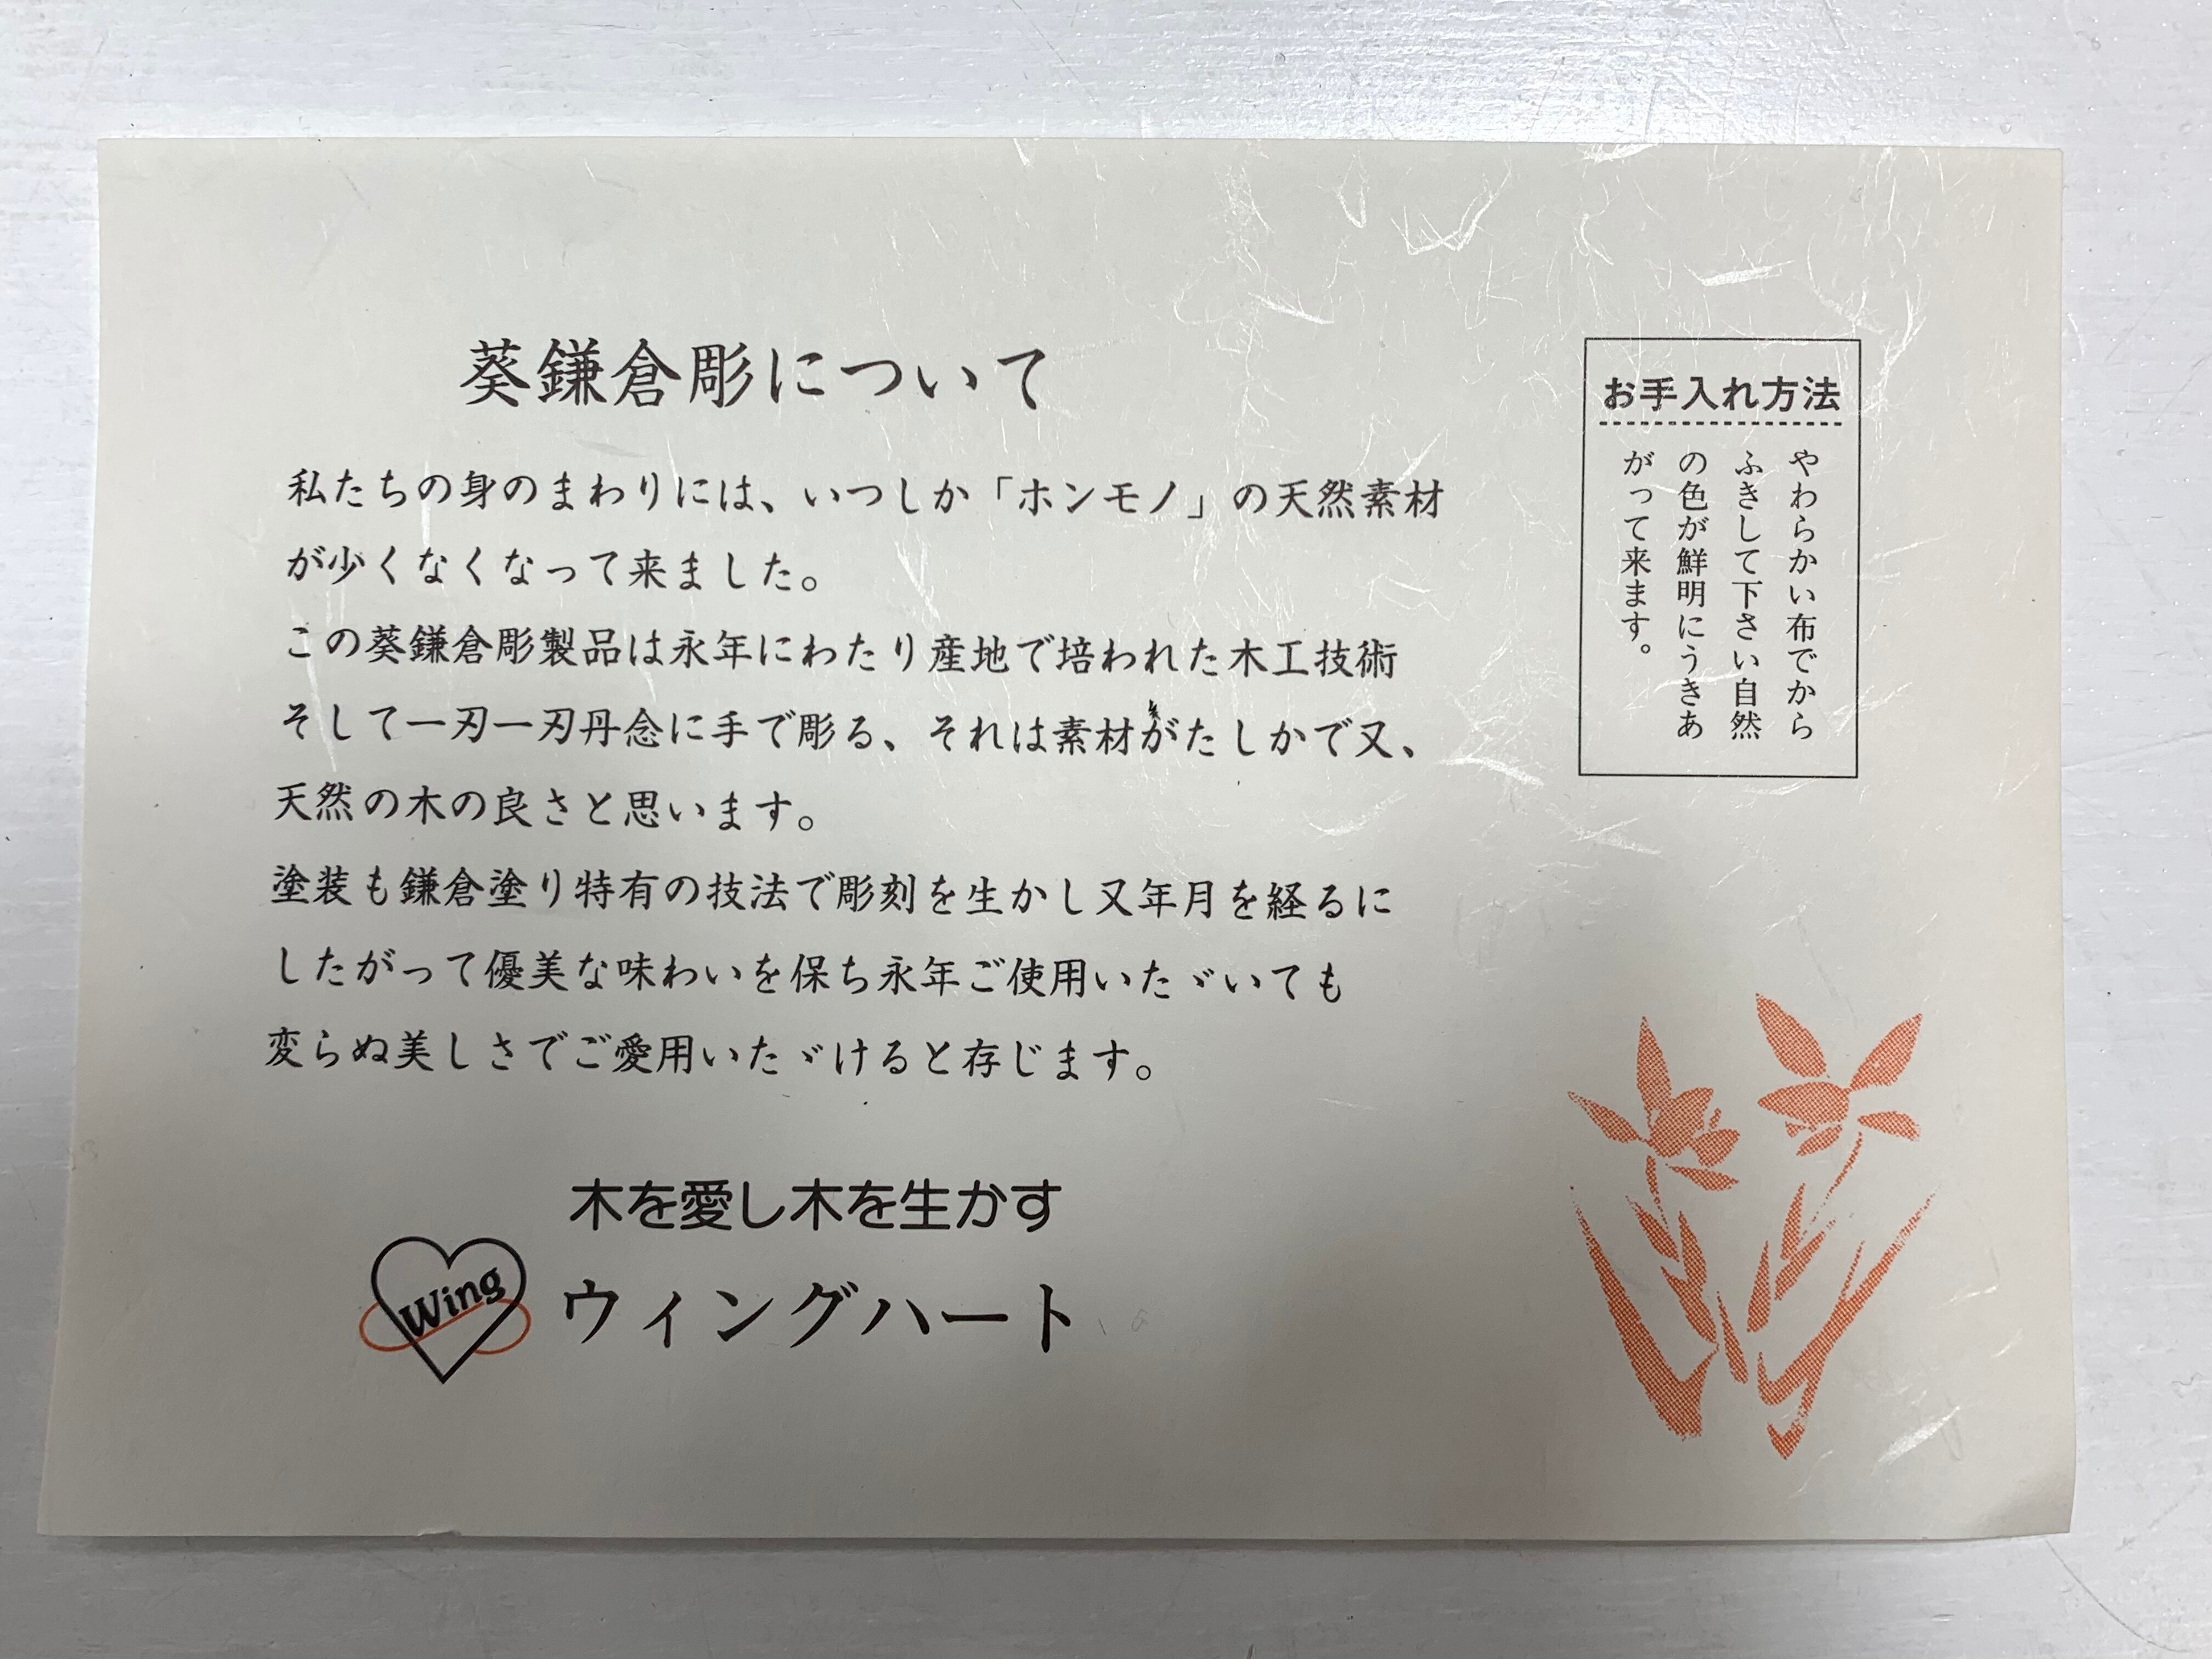 葵鎌倉彫について
私たちの身のまわりには、いつしか「ホンモノ」の天然素材
が少くなくなって来ました。
この葵鎌倉彫製品は永年にわたり産地で培われた木工技術
そして一刃一刃丹念に手で彫る、それは素材がたしかで又、
天然の木の良さと思います。
塗装も鎌倉塗り特有の技法で彫刻を生かし又年月を経るに
したがって優美な味わいを保ち永年ご使用いたゞいても
変らぬ美しさでご愛用いたゞけると存じます。
木を愛し木を生かす
Wing
ウィングハート
お手入れ方法
やわらかい布でから
ふきして下さい自然
の色が鮮明にうきあ
がって来ます。